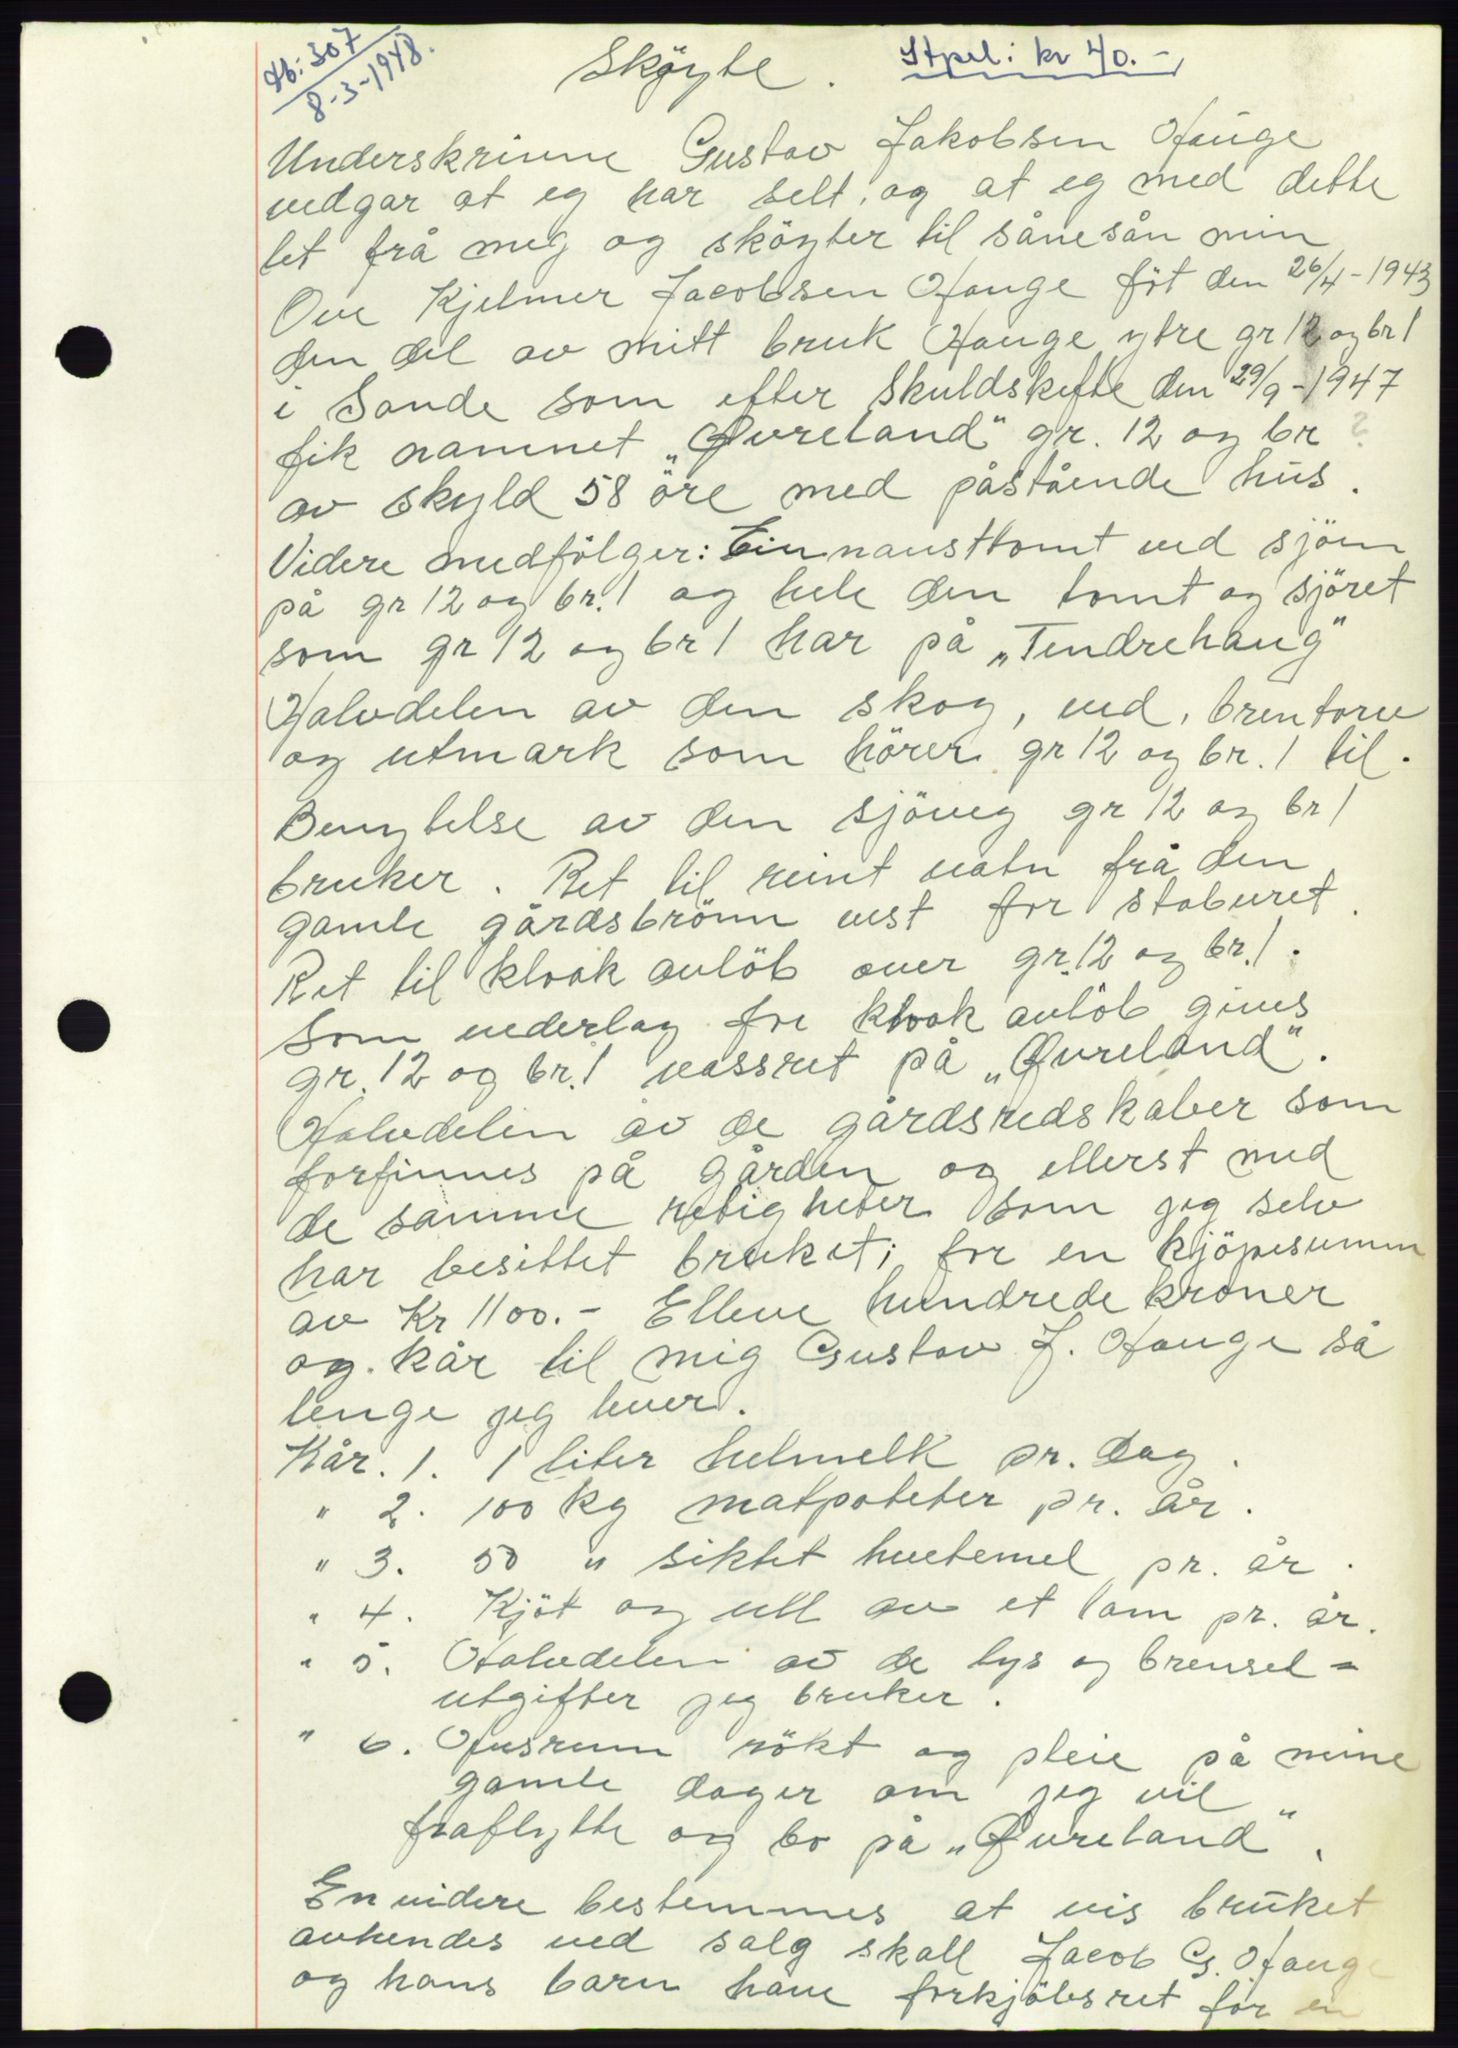 Db: 307
8-3-1948.
Sköyte. Stpel: kr 40.-
Underskrivne Gustav Jakobsen Hauge
vedgar at eg har selt, og at eg med dette
let frå meg og sköyter til sånesån min
Ove Kjelmer Jacobsen Hauge föt den 26/4-1943
den del av mitt bruk Hauge ytre gr 12 og br 1
i Sande som efter Skuldskifte den 29/9-1947
fik namnet „Øvreland" gr. 12 og br ?
av skyld 58 öre med påstående hus.
Videre medfölger: Ein nausttomt ved sjöen
på gr 12 og br. 1 og hele den tomt og sjöret
som gr 12 og br 1 har på „Tendrehaug"
Halvdelen av den skog, ved, brentorv
og utmark som hörer gr 12 og br. 1 til.
Benytelse av den sjöveg gr 12 og br 1
bruker. Ret til reint vatn frå den
gamle gårdsbrönn vest for staburet.
Ret til kloak avlöb over gr. 12 og br. 1.
Som vederlag for kloak avlöb gives
gr. 12 og br. 1 vassret på „Øvreland".
Halvdelen av de gårdsredskaber som
forfinnes på gården og ellerst med
de samme retigheter som jeg selv
har besittet bruket; for en kjöpesumm
av Kr 1100.- Elleve hundrede kroner
og kår til mig Gustav J. Hauge så
lenge jeg lever.
Kår. 1. 1 liter helmelk pr. dag.
" 2. 100 kg matpoteter pr. år.
" 3. 50 " siktet hvetemel pr. år.
" 4. Kjöt og ull av et lam pr. år.
" 5. Halvdelen av de lys og brensel=
utgifter jeg bruker.
" 6. Husrum rökt og pleie på mine
gamle dager om jeg vil
fraflytte og bo på „Øvreland".
En videre bestemmes at vis brüket
avhendes ved salg skall Jacob G. Hauge
og hans barn have forkjöbsret for en